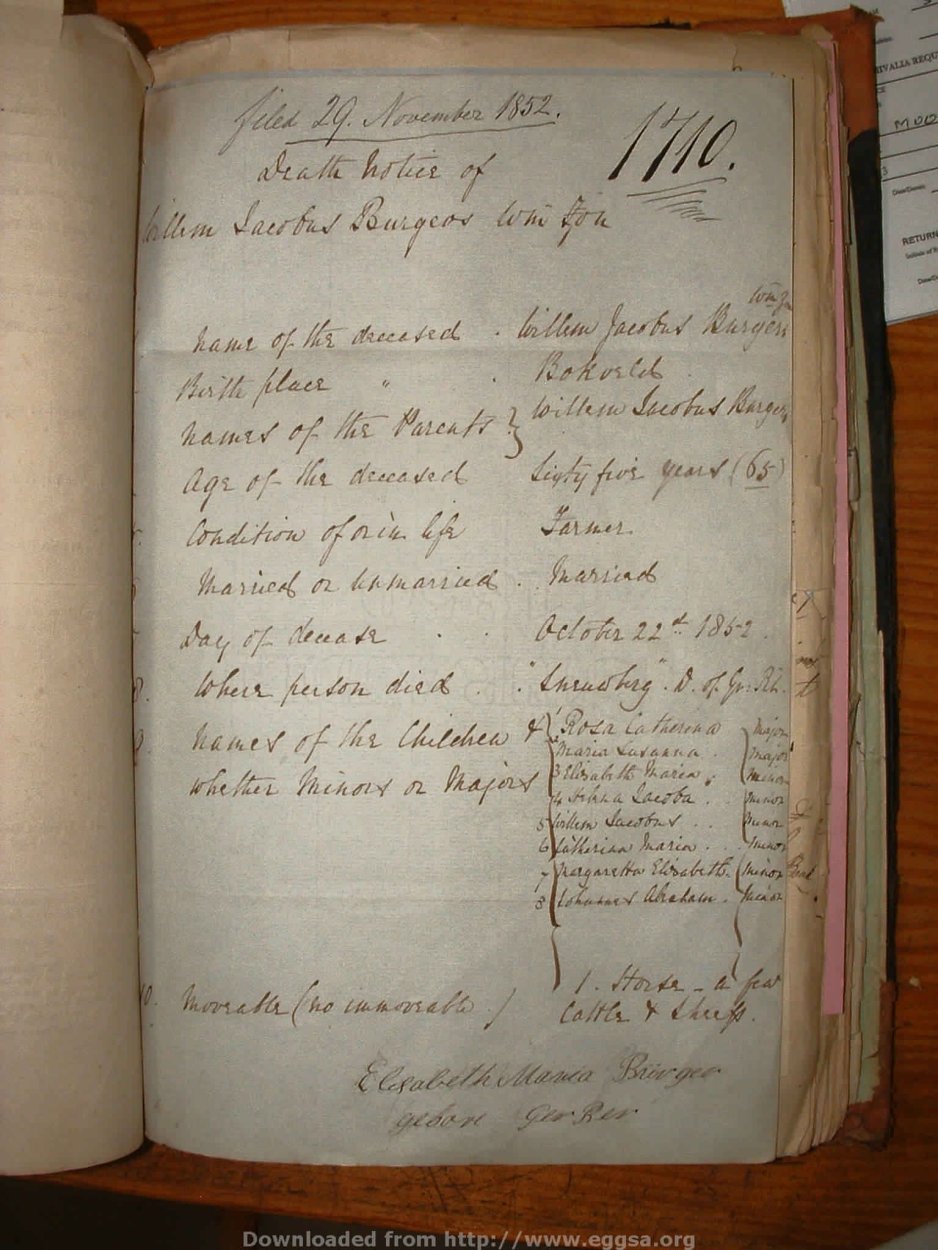 filed 29. November 1852.
1710.
Death Notice of
Willem Jacobus Burgers Wm Zon
Wm Zn
Name of the deceased . Willem Jacobus Burgers
Birth place " . Bokveld
Names of the Parents } Willem Jacobus Burgers
Age of the deceased Sixty five years (65)
Condition of or in life Farmer
Married or Unmarried . Married
Day of decease . . October 22d 1852.
8. Where person died . " " D. of Gr: Rt.
9. Names of the Children & 1 Rosa Catherina Major
2 Maria Susanna . Major
3 Elisabeth Maria . Minor
whether Minors or Majors
4 Helena Jacoba . Minor
5 Willem Jacobus . . Minor
6 Catherina Maria . . . Minor
7 Margaretta Elisabeth . Minor
8 Johannes Abraham . Minor
10. Moveable (no immoveable.) 1. Horse - a few
Cattle & Sheep.
Elisabeth Maria Burger
gebore
MOO
RIVALIA REQU
RETURN
Downloaded from http://www.eggsa.org